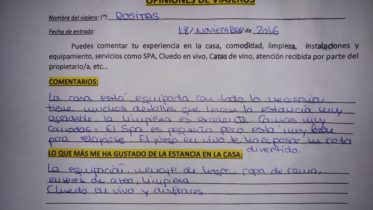 OPINIONES DE VIAJEROS
Nombre del viajero: (*) ROSITAS
Fecha de entrada: 18/Noviembre de 2016
Puedes comentar tu experiencia en la casa, comodidad, limpieza, instalaciones y
equipamiento, servicios como SPA, Cluedo en vivo, Catas de vino, atención recibida por parte del
propietario/a, etc...
COMENTARIOS:
La casa está equipada con todo lo necesario,
tiene muchos detalles que hacen la estancia muy
agradable. La limpieza es excelente. Camas muy
comodas. El Spa es pequeño pero esta muy bien
para relajarse. El juego en vivo te hace pasar un rato
divertido.
LO QUE MÁS ME HA GUSTADO DE LA ESTANCIA EN LA CASA:
La equipación, menaje de hogar, ropa de cama,
enseres de aseo, limpieza.
Cluedo en vivo y disfraces